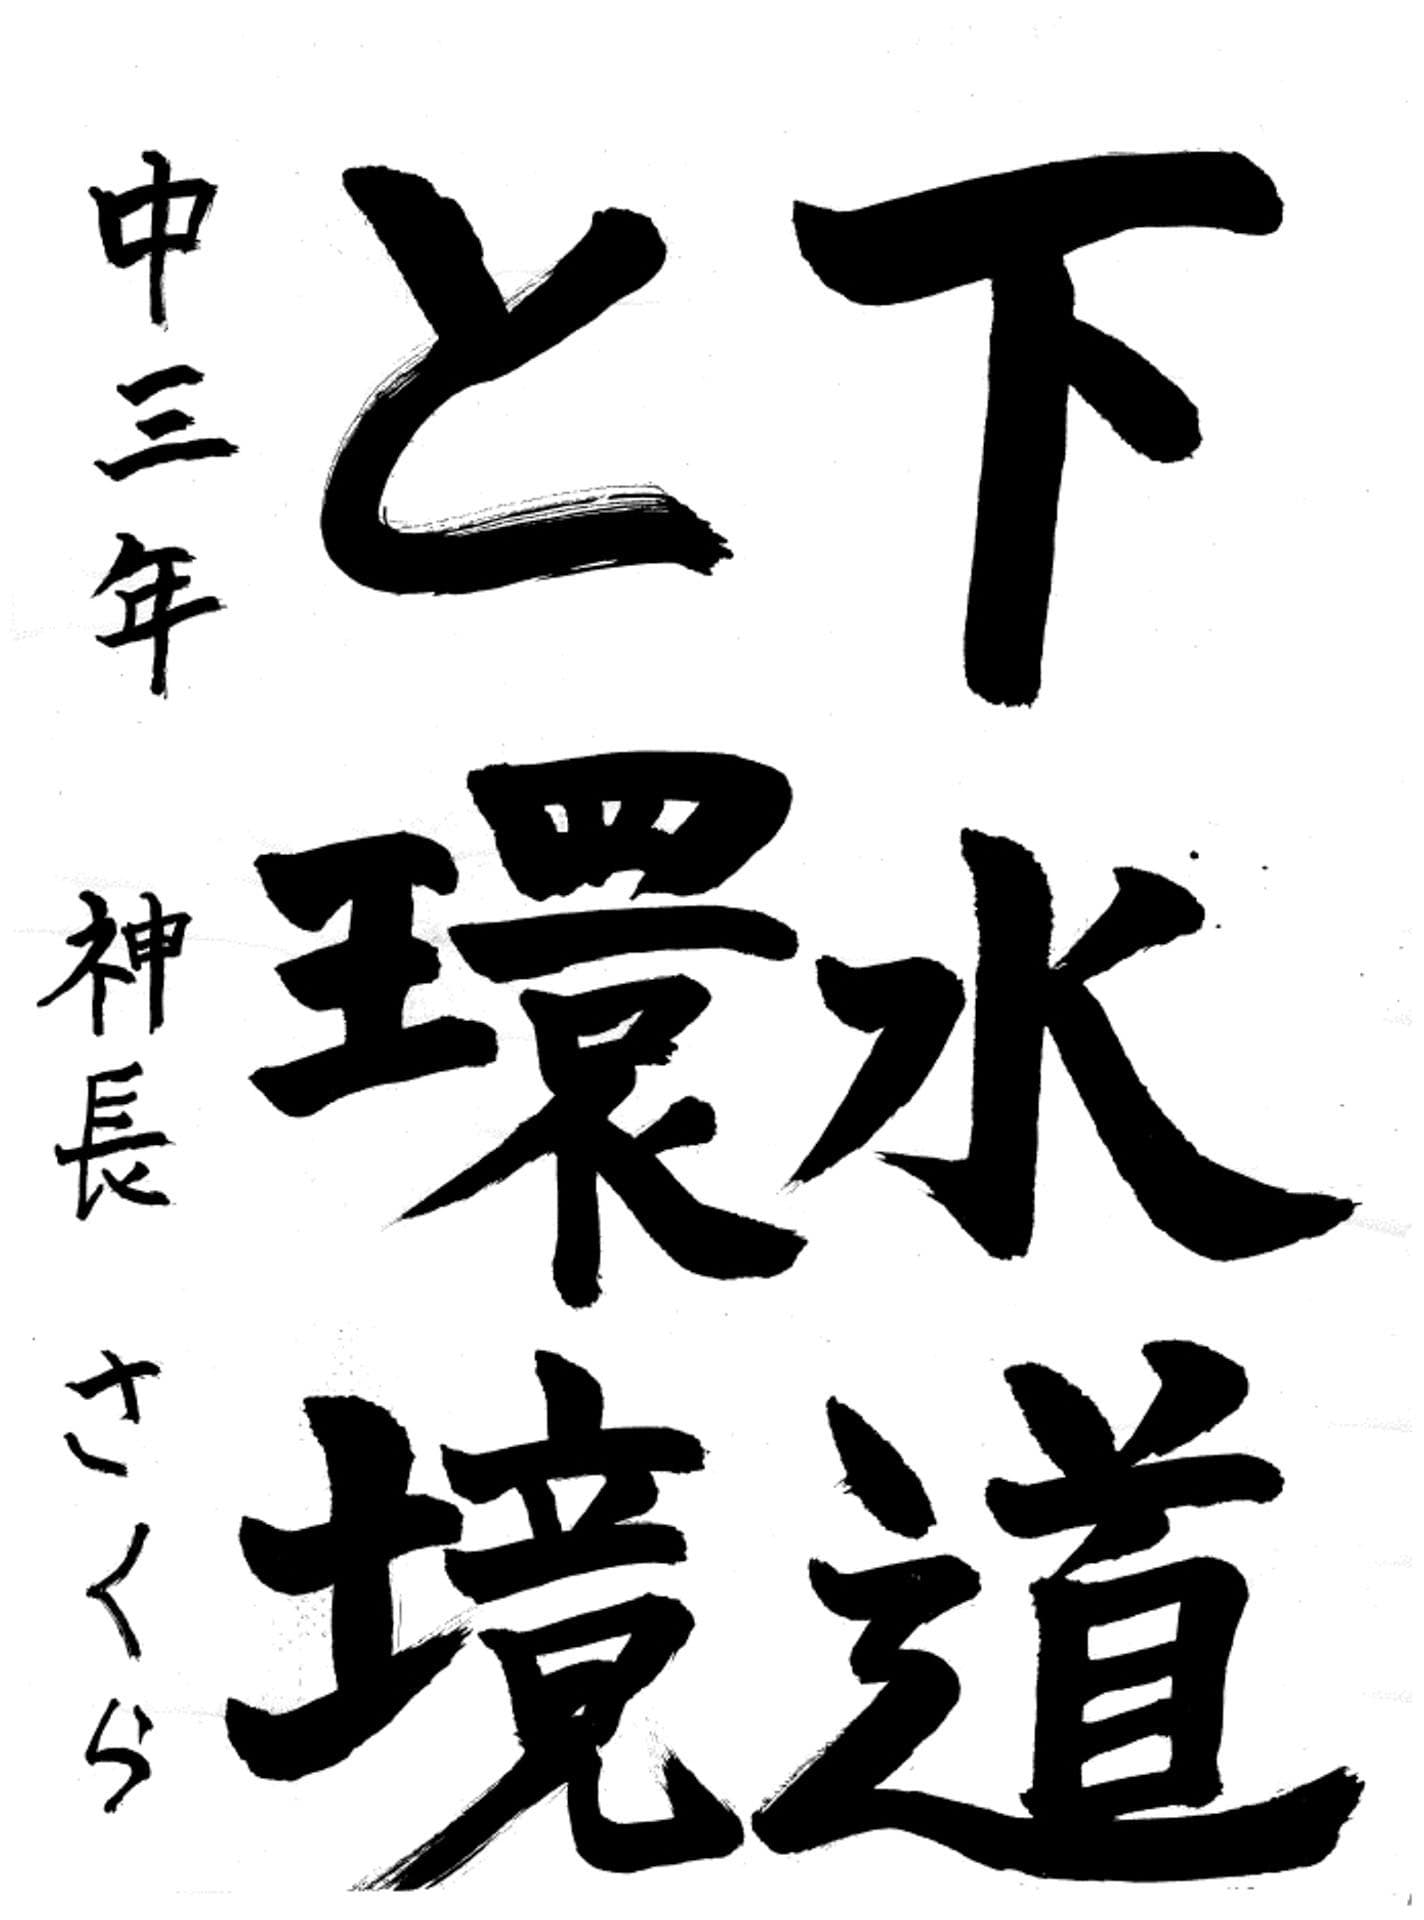 下水道
と環境
中三年 神長さくら